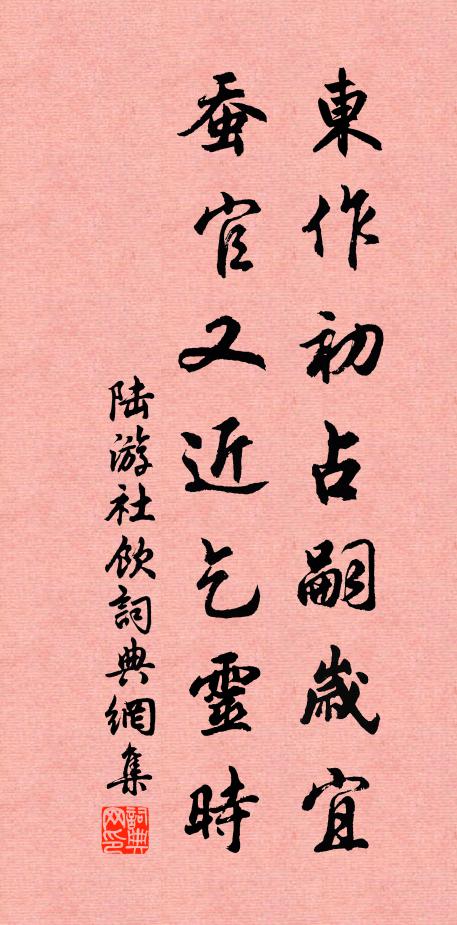 東作初占嗣歲宜
蚕官又近乞靈時
陆游社飲詞典網集
詞典网印